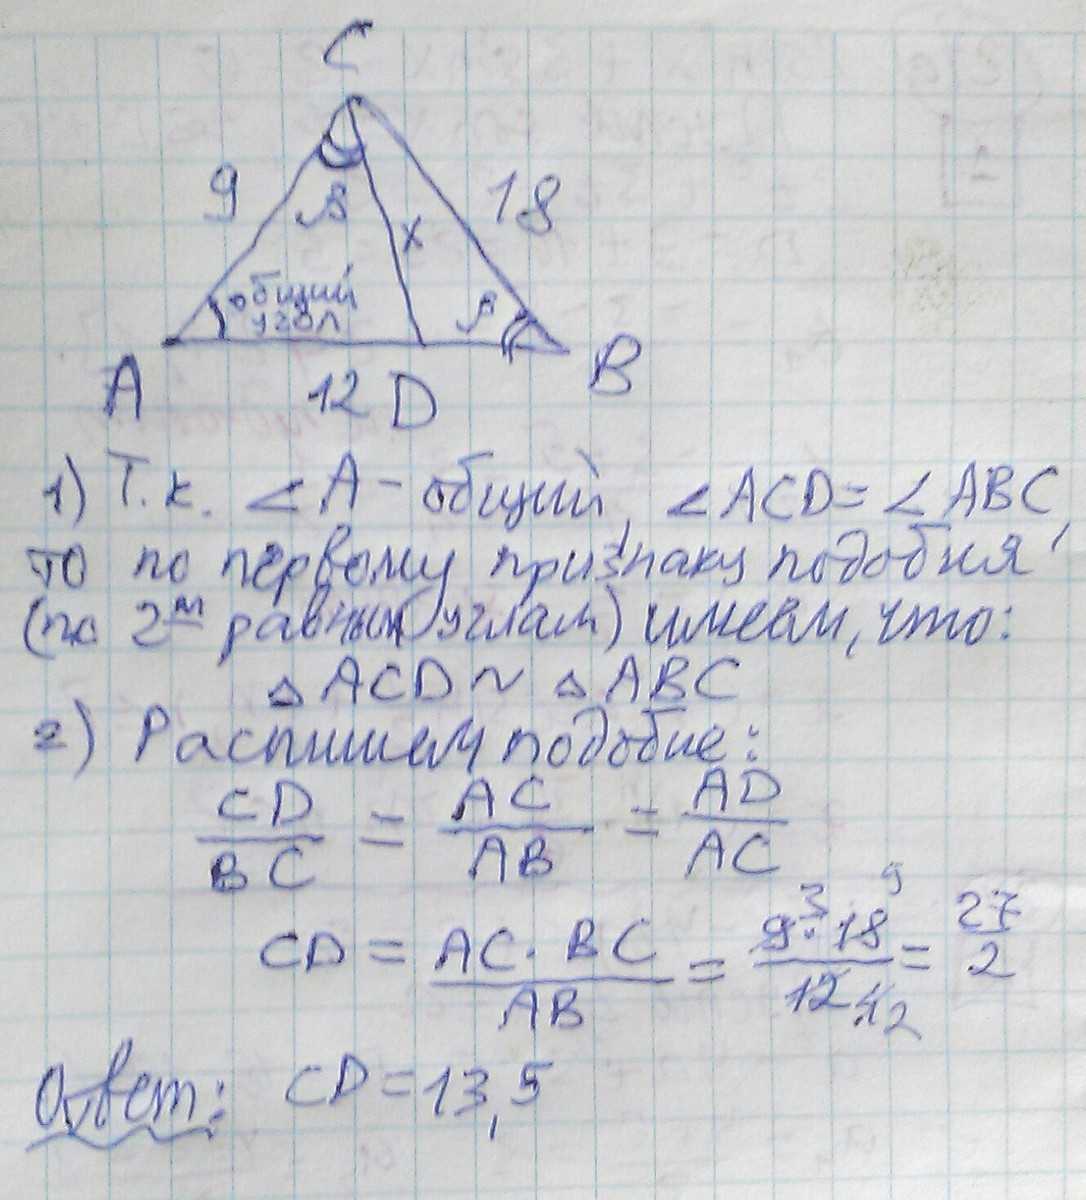 C
9
18
β
x
общий
угол
β
A
12
D
B
1) Т.к. ∠A - общий, ∠ACD = ∠ABC,
то по первому признаку подобия
(по 2ᵐ равным углам) имеем, что:
△ACD ~ △ABC
2) Распишем подобие:
CD/BC = AC/AB = AD/AC
CD = AC·BC/AB = 9·18/12 = 27/2
Ответ: CD = 13,5